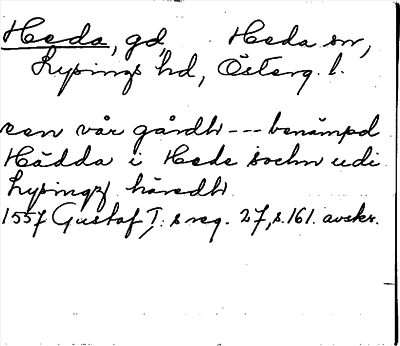 Heda, gd, Heda sn,
Lysings hd, Österg. l.
een vår gårdh --- benämpd
Hädda i Hede sochn udi
Lysingz häredh
1557 Gustaf I: s reg. 27, s. 161. avskr.